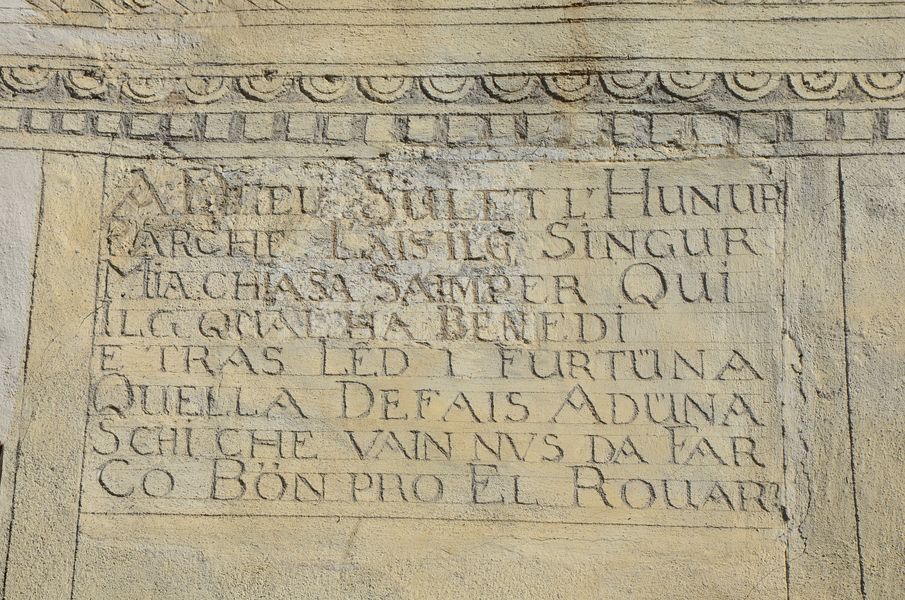 A DIEU SULET L'HUNUR
PARCHE L'AIS ILG SINGUR
MIA CHIASA SAIMPER QUI
ILG QUAL HA BENEDI
E TRAS LED I FURTÜNA
QUELLA DEFAIS ADÜNA
SCHI CHE VAIN NVS DA FAR
CO BÖN PRO EL ROUAR